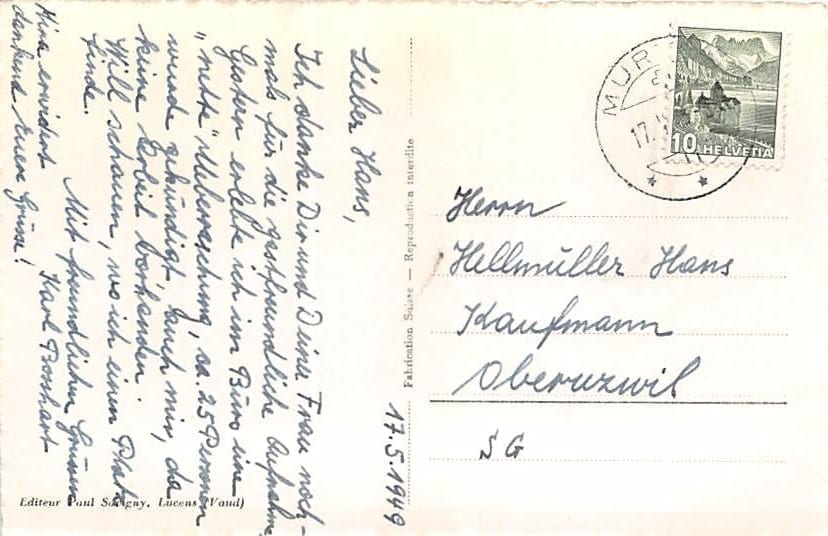 17.5.1949
Lieber Hans,
Ich danke Dir und Deiner Frau noch-
mals für die gastfreundliche Aufnahme
Gestern erlebte ich im Büro eine
"nette" Ueberraschung, ca. 25 Personen
wurde gekündigt, auch mir, da
keine Arbeit vorhanden.
Will schauen, wo ich einen Platz
finde.
Mit freundlichen Grüssen
Karl Bosshart
Mina erwidert
dankend Euere Grüsse!
Editeur Paul Savigny, Lucens (Vaud)
Fabrication Suisse — Reproduction interdite
MUR
17.
10 HELVETIA
Herrn
Hellmüller Hans
Kaufmann
Oberuzwil
SG